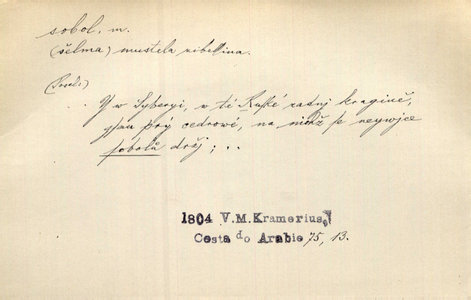 sobol, m.
(šelma) mustela zibellina.
Y w Syberyi, w té Ruské zadnj kragině,
gsau prý cedrowé, na nichž se neywjce
sobolů držj; ..
1804 V.M.Kramerius,
Cesta do Arabie 75, 13.